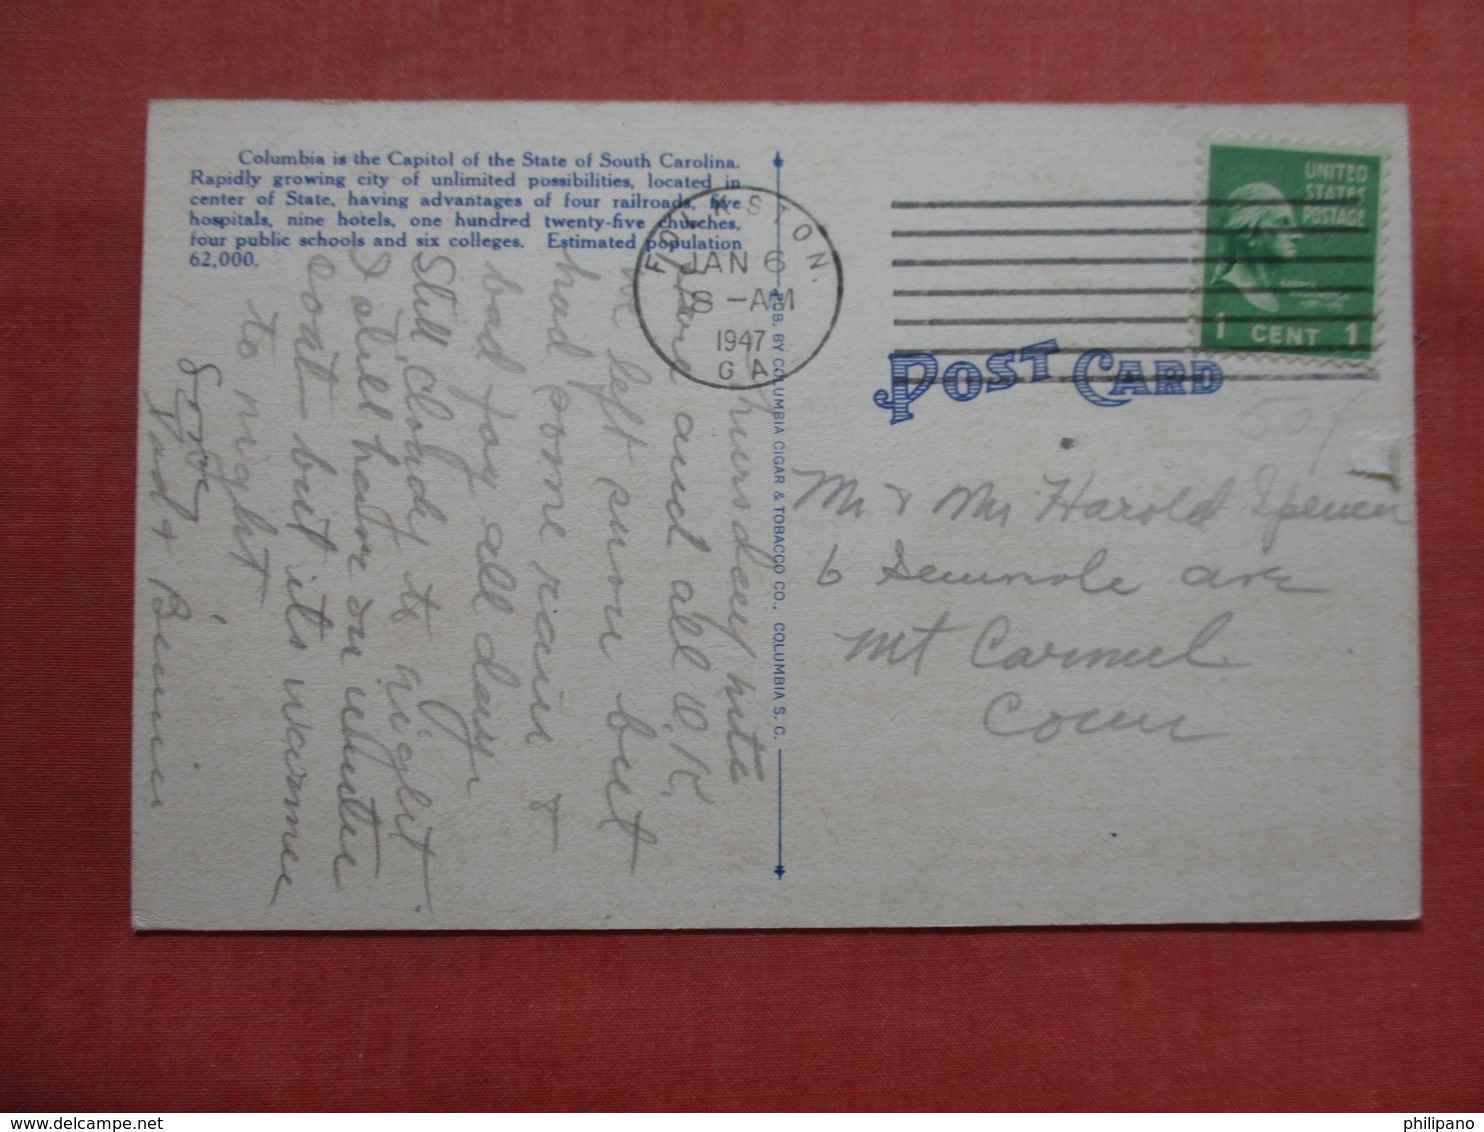 Columbia is the Capitol of the State of South Carolina.
Rapidly growing city of unlimited possibilities, located in
center of State, having advantages of four railroads, five
hospitals, nine hotels, one hundred twenty-five churches,
four public schools and six colleges. Estimated population
62,000.
Thursday nite
Here and all O.K.
We left snow but
had some rain &
bad fog all day
Still Cloudy to night
I still have on winter
coat but its warmer
to night
Love
Dad & Bennie
PUB. BY COLUMBIA CIGAR & TOBACCO CO., COLUMBIA S. C.
FOLKSTON.
JAN 6
8 - AM
1947
GA
UNITED
STATES
POSTAGE
1 CENT 1
POST CARD
50/
Mr & Mrs Harold Spencer
6 Seminole ave
Mt Carmel
Conn
philipano